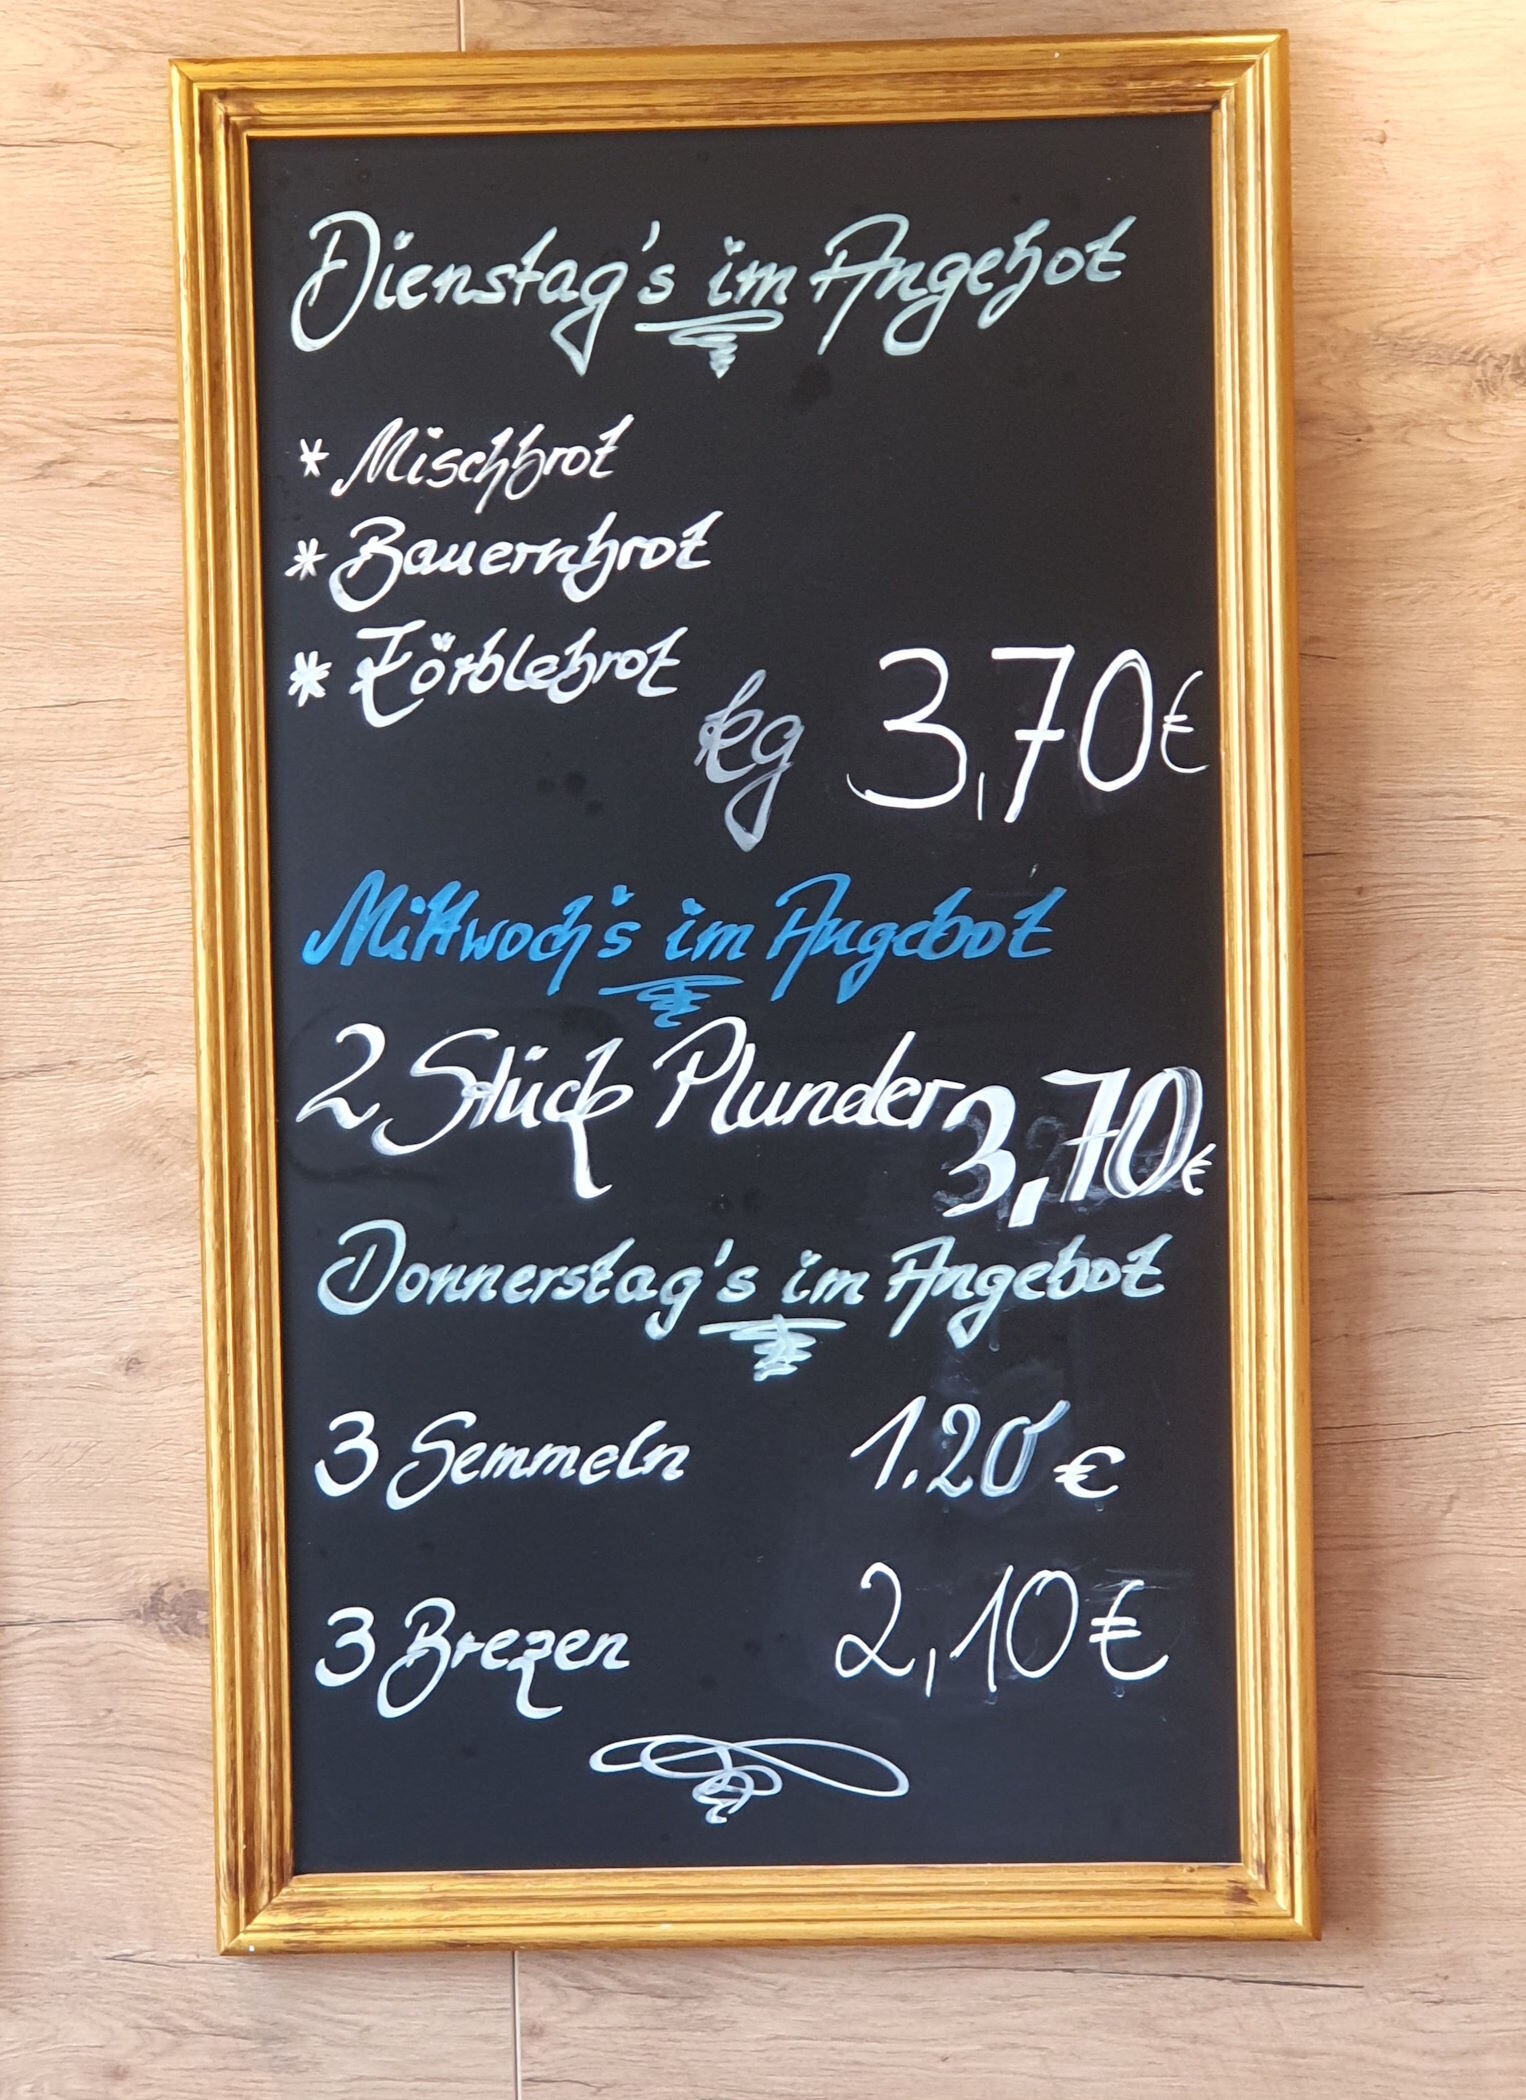 Dienstag's im Angebot
* Mischbrot
* Bauernbrot
* Körblebrot
kg 3,70€
Mittwoch's im Angebot
2 Stück Plunder 3,70€
Donnerstag's im Angebot
3 Semmeln 1.20 €
3 Brezen 2,10 €